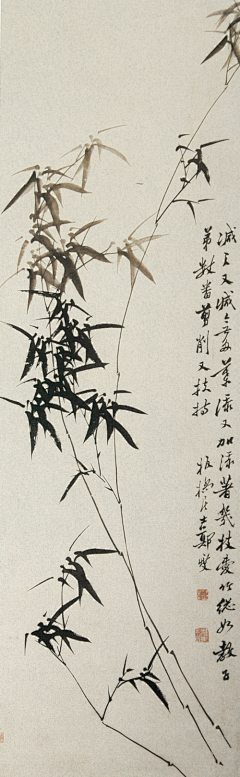 减之又减無多葉添又加添著幾枝愛竹總如教子
弟數番剪削又扶持
板橋居士鄭燮